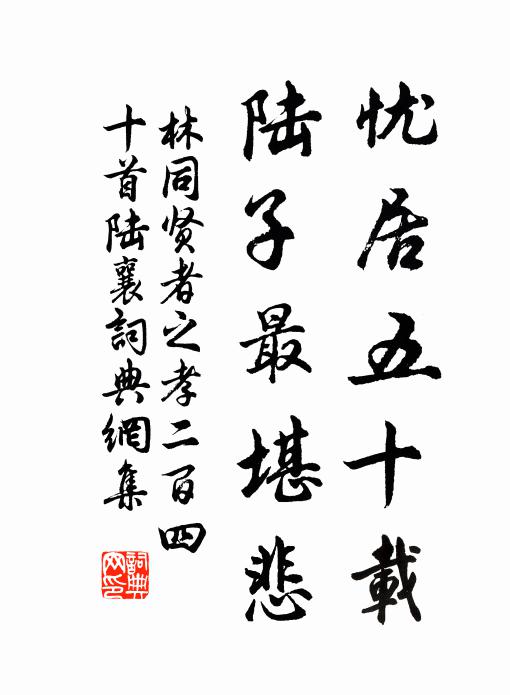 忧居五十載
陆子最堪悲
林同贤者之孝二百四
十首陆襄詞典網集
詞典
网印